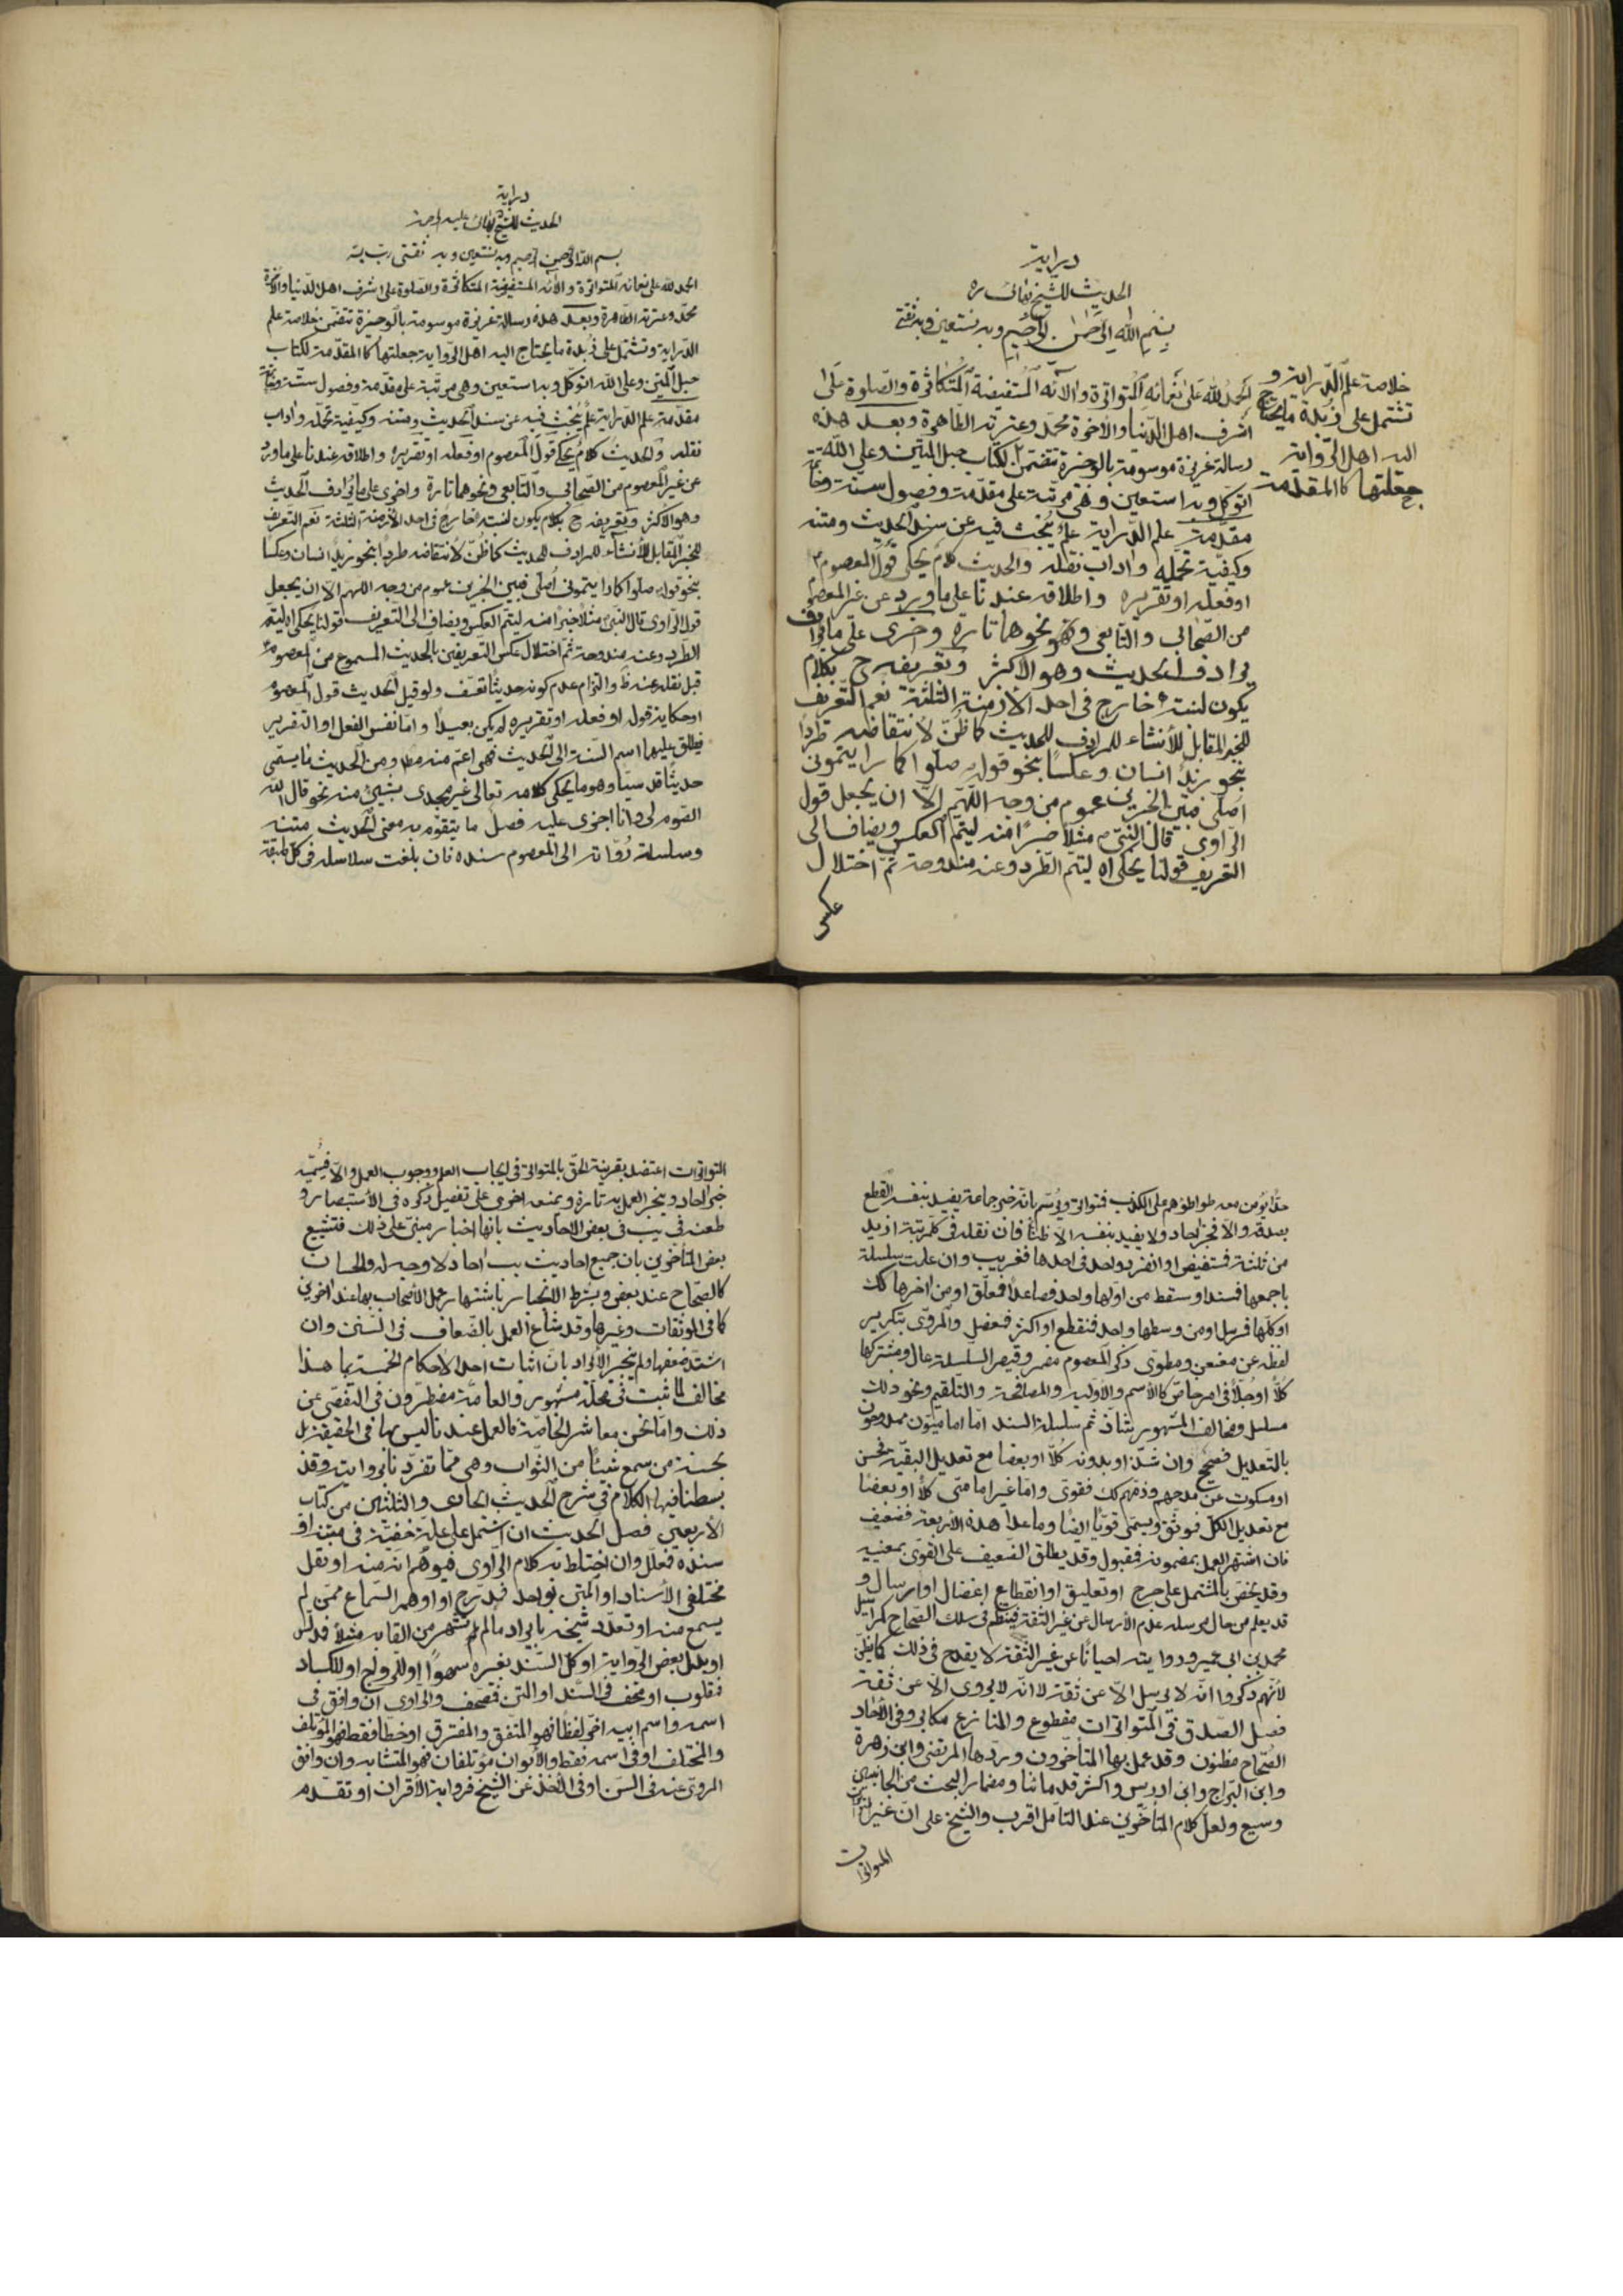 دراية
الحديث للشيخ بهائى ره
بسم الله الرحمن الرحيم وبه نستعين وبه ثقتى
الحمد لله على نعمائه المتواترة والائه المستفيضة المتكاثرة والصلوة على
اشرف اهل الدنيا والاخرة محمد وعترته الطاهرة وبعد هذه
رسالة عزيزة موسومة بالوجيزة تتضمن لكتاب حبل المتين وعلى الله
اتوكل وبه استعين وهى مرتبة على مقدمة وفصول ستة وخاتمة
خلاصة علم الدراية و
تشتمل على زبدة مايحتاج
اليه اهل الرواية
جعلتها كالمقدمة
صح
مقدمة علم الدراية علم يبحث فيه عن سند الحديث ومتنه
وكيفية تحمله واداب نقله والحديث كلام يحكى قول المعصوم
اوفعله اوتقريره واطلاقه عندنا على ماورد عن غير المعصوم
من الصحابى والتابعى ونحوهما تارة وخرى على مايرادف
يرادف الحديث وهو الاكثر وتعريفه ح بكلام
يكون لنسبته خارج فى احد الازمنة الثلثة نعم التعريف
للخبر المقابل للأنشاء للمرادف للحديث كماظن لانتقاضه طردا
بنحو زيد انسان وعكسا بنحو قوله صلوا كما رايتمونى
اصلى فبين الخبرين عموم من وجه اللهم الا ان يجعل قول
الراوى قال النبى مثلا خبرا منه ليتم العكس ويضاف الى
التعريف قولنا يحكى اه ليتم الطرد وعنه مندوحة ثم اختلال
عكس
دراية
الحديث للشيخ بهائى عليه الرحمة
بسم الله الرحمن الرحيم وبه نستعين وبه ثقتى رب يسر
الحمد لله على نعمائه المتواترة والائه المستفيضة المتكاثرة والصلوة على اشرف اهل الدنيا والاخرة
محمد وعترته الطاهرة وبعد هذه رسالة عزيزة موسومة بالوجيزة تتضمن خلاصة علم
الدراية وتشتمل على زبدة مايحتاج اليه اهل الرواية جعلتها كالمقدمة لكتاب
حبل المتين وعلى الله اتوكل وبه استعين وهى مرتبة على مقدمة وفصول ستة وخاتمة
مقدمة علم الدراية علم يبحث فيه عن سند الحديث ومتنه وكيفية تحمله واداب
نقله والحديث كلام يحكى قول المعصوم اوفعله اوتقريره واطلاقه عندنا على ماورد
عن غير المعصوم من الصحابى والتابعى ونحوهما تارة واخرى على مايرادف الحديث
وهو الاكثر وتعريفه ح بكلام يكون لنسبته خارج فى احد الازمنة الثلثة نعم التعريف
للخبر المقابل للأنشاء للمرادف للحديث كماظن لانتقاضه طردا بنحو زيد انسان وعكسا
بنحو قوله صلوا كما رايتمونى اصلى فبين الخبرين عموم من وجه اللهم الا ان يجعل
قول الراوى قال النبى مثلا خبرا منه ليتم العكس ويضاف الى التعريف قولنا يحكى اه ليتم
الطرد وعنه مندوحة ثم اختلال عكس التعريفين بالحديث المسموع من المعصوم
قبل نقله عنه ظ والتزام عدم كونه حديثا تعسف ولو قيل الحديث قول المعصوم
اوحكاية قوله اوفعله اوتقريره لم يكن بعيدا واما نفس الفعل او التقرير
فيطلق عليهما اسم السنة الى الحديث فهى اعم منه مط ومن الحديث مايسمى
حديثا قدسيا وهو مايحكى كلامه تعالى غير متحدى بشيئ منه نحو قال الله
الصوم لى وانا اجزى عليه فصل ما يتقوم به معنى الحديث متنه
وسلسلة رواته الى المعصوم سنده فان بلغت سلاسله فى كل طبقة
حدا يؤمن معه طواطؤهم على الكذب فمتواتر ويرسم بانه خبر جماعة يفيد بنفسه القطع
بصدقه والا فخبر احاد ولايفيد بنفسه الا ظنا فان نقله فى كل مرتبة ازيد
من ثلثة فمستفيض او انفرد به واحد فى احدها فغريب وان علمت سلسلة
باجمعها فمسند او سقط من اولها واحد فصاعدا فمعلق او من اخرها كك
اوكلها فمرسل اومن وسطها واحد فمنقطع او اكثر فمعضل والمروى بتكرير
لفظه عن معنعن ومطوى ذكر المعصوم مضمر وقصير السلسلة عال ومشتركها
كلا اوجلا فى امر خاص كالأسم والاولية والمصافحة والتلقيم ونحو ذلك
مسلسل ومخالف المشهور شاذ ثم سلسلة السند اما اماميتون ممدوحون
بالتعديل فصحيح وان شذ اوبدونه كلا اوبعضا مع تعديل البقية فحسن
اومسكوت عن مدحهم وذمهم كك فقوى واما غير امامى كلا اوبعضا
مع تعديل الكل فموثق ويسمى قويا ايضا وماعدا هذه الاربعة فضعيف
فان اشتهر العمل بمضمونه فمقبول وقد يطلق الضعيف على القوى بمعنييه
وقد يخص بالمشتمل على جرح اوتعليق اوانقطاع اعضال اوارسال و
قد يعلم من حال مرسله عدم الأرسال عن غير الثقة فينتظم فى سلك الصحاح كمراسيل
محمد بن ابى عمير وروايته احيانا عن غير الثقة لايقدح فى ذلك كمايظن
لأنهم ذكروا انه لايرسل الا عن ثقة لا انه لايروى الا عن ثقة
فصل الصدق فى المتواترات مقطوع والمنازع مكابر وفى الأحاد
الصحاح مظنون وقد عمل بها المتأخرون وردها المرتضى وابن زهرة
وابن البراج وابن ادريس واكثر قدمائنا ومضمار البحث من الجانبين
وسيع ولعل كلام المتأخرين عند التأمل اقرب والشيخ على ان غير
المتواترات
المتواترات اعتضد بقرينة الحق بالمتواتر فى ايجاب العلم ووجوب العمل والا فيسميه
خبر احاد ويجيز العمل به تارة ويمنعه اخرى على تفصيل ذكره فى الأستبصار و
طعنه فى يب فى بعض الاحاديث بانها اخبار مبنى على ذلك فتشنيع
بعض المتأخرين بان جميع احاديث يب احاد لاوجه له والحسان
كالصحاح عند بعض وبشرط الانجبار باشتهار عمل الأصحاب بها عند اخرين
كما فى الموثقات وغيرها وقد شاع العمل بالضعاف فى السنن وان
اشتد ضعفها ولم ينجبر الأيراد بان اثبات احد الاحكام الخمسة بما هذا
مخالف لما ثبت فى محله مشهور والعامة مضطربون فى التفصى عن
ذلك واما نحن معاشر الخاصة فالعمل عندنا ليس بها فى الحقيقة بل
بحسنة من سمع شيئا من الثواب وهى مما تفردنا بروايته وقد
بسطنا فيها الكلام فى شرح الحديث الحادى والثلثين من كتاب
الأربعين فصل الحديث ان اشتمل على علة خفية فى متنه او
سنده فمعلل وان اختلط به كلام الراوى فتوهم انه منه او نقل
مختلفى الأسناد او المتن بواحد فمدرج او اوهم السماع ممن لم
يسمع منه او تعدد شيخه بايراد مالم يشتهر من القابه مثلا فمدلس
اوبدل بعض الرواية اوكل السند بغيره سهوا اوللرواج اوللكساد
فمقلوب اوصحف فى السند او المتن فمصحف والراوى ان وافق فى
اسمه واسم ابيه اخر لفظا فهو المتفق والمفترق اوخطا فقط فهو المؤتلف
والمختلف اوفى اسمه فقط والأبوان مؤتلفان فهو المتشابه وان وافق
المروى عنه فى السن اوفى الأخذ عن الشيخ فرواية الأقران او تقدم